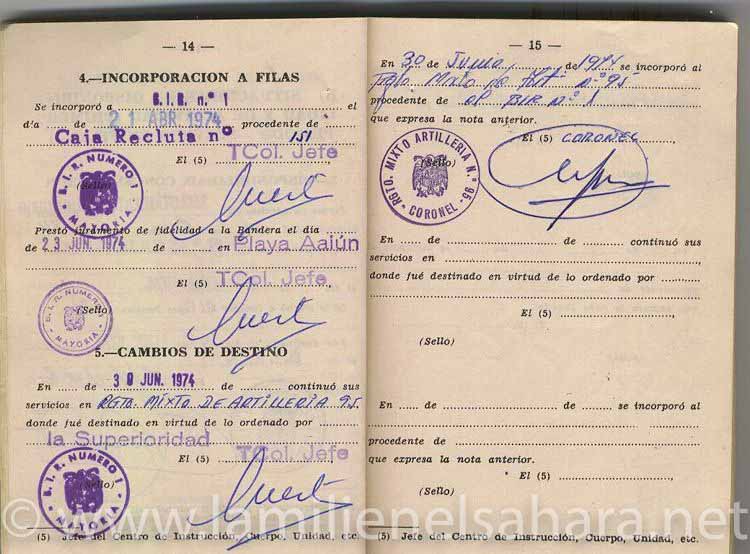 — 14 —
4.—INCORPORACION A FILAS
Se incorporó a B.I.R. n.º 1 el
día de 21 ABR 1974 procedente de
Caja Recluta nº 151
El (5) TCol. Jefe
B.I.R. NUMERO 1
MAYORIA
(Sello)
Prestó juramento de fidelidad a la Bandera el día
de 23 JUN. 1974 de en Playa Aaiún
El (5) TCol. Jefe
B.I.R. NUMERO 1
MAYORIA
(Sello)
5.—CAMBIOS DE DESTINO
En de 30 JUN. 1974 de continuó sus
servicios en RGTO. MIXTO DE ARTILLERIA 95.
donde fué destinado en virtud de lo ordenado por
la Superioridad
El (5) TCol. Jefe
B.I.R. NUMERO 1
MAYORIA
(5) Jefe del Centro de Instrucción, Cuerpo, Unidad, etc.
— 15 —
En 30 Junio de 1974 se incorporó al
Rgto. Mixto de Art. nº 95
procedente de BIR nº 1
que expresa la nota anterior.
El (5) CORONEL
RGTO. MIXTO ARTILLERIA N.º 95
- CORONEL -
(Sello)
En de de continuó sus
servicios en
donde fué destinado en virtud de lo ordenado por
El (5)
(Sello)
En de de se incorporó al
procedente de
que expresa la nota anterior.
El (5)
(Sello)
(5) Jefe del Centro de Instrucción, Cuerpo, Unidad, etc.
© www.lamilienelsahara.net